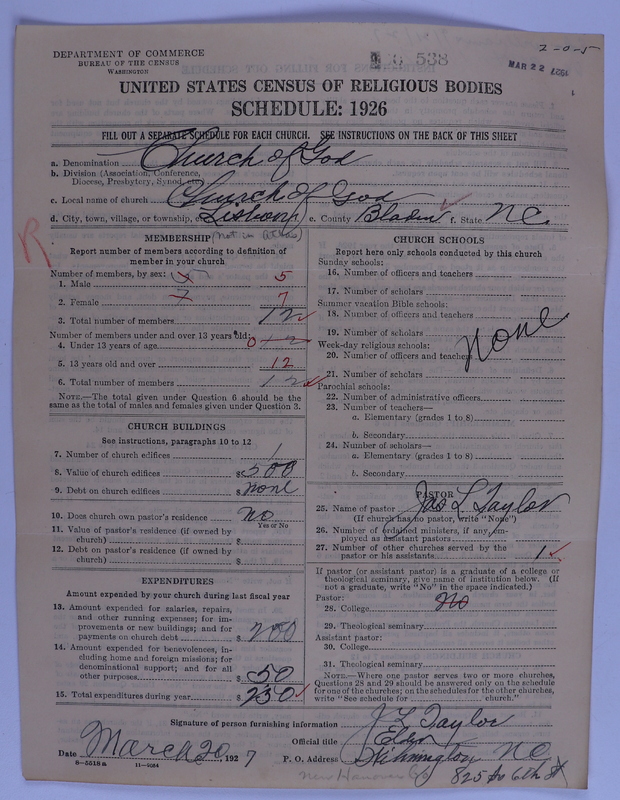 2-0-5
538
MAR 22 1927
DEPARTMENT OF COMMERCE
BUREAU OF THE CENSUS
WASHINGTON
UNITED STATES CENSUS OF RELIGIOUS BODIES
SCHEDULE: 1926
FILL OUT A SEPARATE SCHEDULE FOR EACH CHURCH. SEE INSTRUCTIONS ON THE BACK OF THIS SHEET
a. Denomination Church of God
b. Division (Association, Conference, Diocese, Presbytery, Synod, etc.)
c. Local name of church Church of God
d. City, town, village, or township, etc. Lisbon e. County Bladen f. State N.C.
(not in Atlas)
R
MEMBERSHIP
Report number of members according to definition of
member in your church
Number of members, by sex:
1. Male 5
2. Female 7 7
3. Total number of members 12
Number of members under and over 13 years old:
4. Under 13 years of age 0
5. 13 years old and over 12
6. Total number of members 12
NOTE.—The total given under Question 6 should be
same as the total of males and females given under Question 3.
CHURCH BUILDINGS
See instructions, paragraphs 10 to 12
7. Number of church edifices 1
8. Value of church edifices $ 500
9. Debt on church edifices $ none
10. Does church own pastor's residence no
Yes or No
11. Value of pastor's residence (if owned by
church) $
12. Debt on pastor's residence (if owned by
church) $
EXPENDITURES
Amount expended by your church during last fiscal year
13. Amount expended for salaries, repairs,
and other running expenses; for im-
provements or new buildings; and for
payments on church debt $ 200
14. Amount expended for benevolences, in-
cluding home and foreign missions; for
denominational support; and for all
other purposes $ 50
15. Total expenditures during year $ 250
CHURCH SCHOOLS
Report here only schools conducted by this church
Sunday schools:
16. Number of officers and teachers
17. Number of scholars
Summer vacation Bible schools:
18. Number of officers and teachers
19. Number of scholars
none
Week-day religious schools:
20. Number of officers and teachers
21. Number of scholars
Parochial schools:
22. Number of administrative officers
23. Number of teachers—
a. Elementary (grades 1 to 8)
b. Secondary
24. Number of scholars—
a. Elementary (grades 1 to 8)
b. Secondary
PASTOR
25. Name of pastor Jas L Taylor
(If church has no pastor, write "None")
26. Number of ordained ministers, if any, em-
ployed as assistant pastors
27. Number of other churches served by the
pastor or his assistants 1
If pastor (or assistant pastor) is a graduate of a college or
theological seminary, give name of institution below. (If
not a graduate, write "No" in the space indicated.)
Pastor:
28. College No
29. Theological seminary
Assistant pastor:
30. College
31. Theological seminary
NOTE.—Where one pastor serves two or more churches,
Questions 28 and 29 should be answered only on the schedule
for one of the churches; on the schedules for the other churches,
write "See schedule for church."
Signature of person furnishing information J L Taylor
Official title Elder
Date March 20, 1927 P. O. Address Wilmington NC
8-5518a 11-9034
New Hanover Co 825 So 6th St